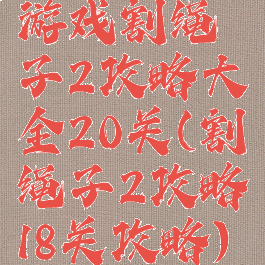 游戏割绳
子2攻略大
全20关(割
绳子2攻略
18关攻略)